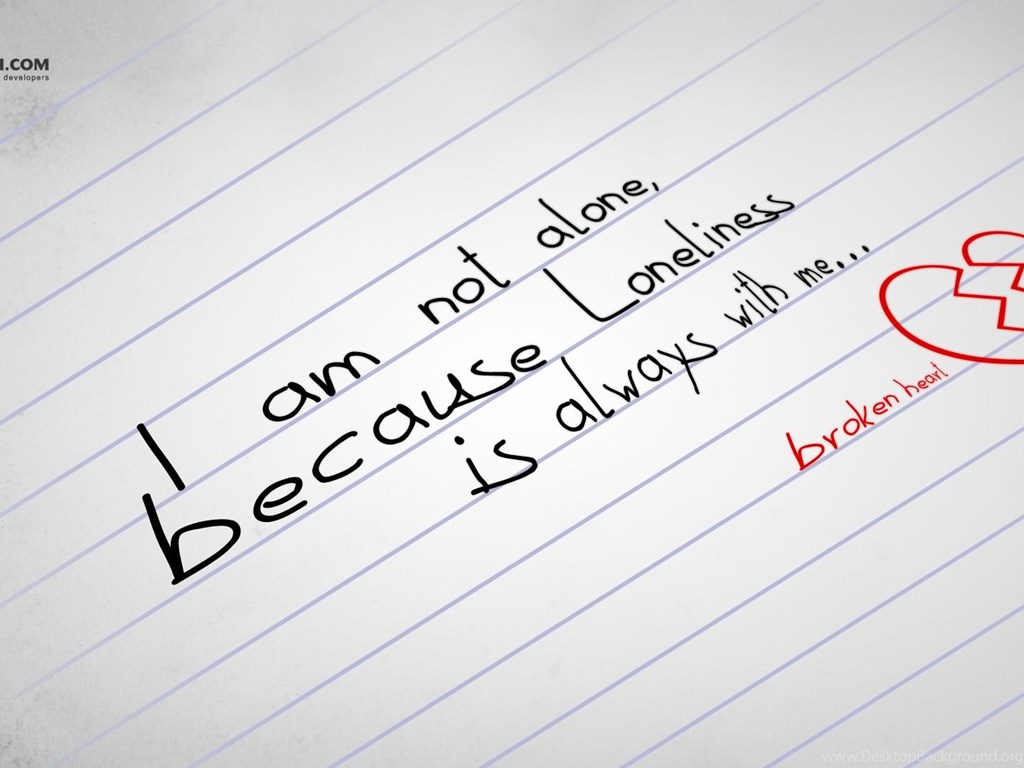 I.COM
developers
I am not alone,
because Loneliness
is always with me...
broken heart
www.DesktopBackground.org